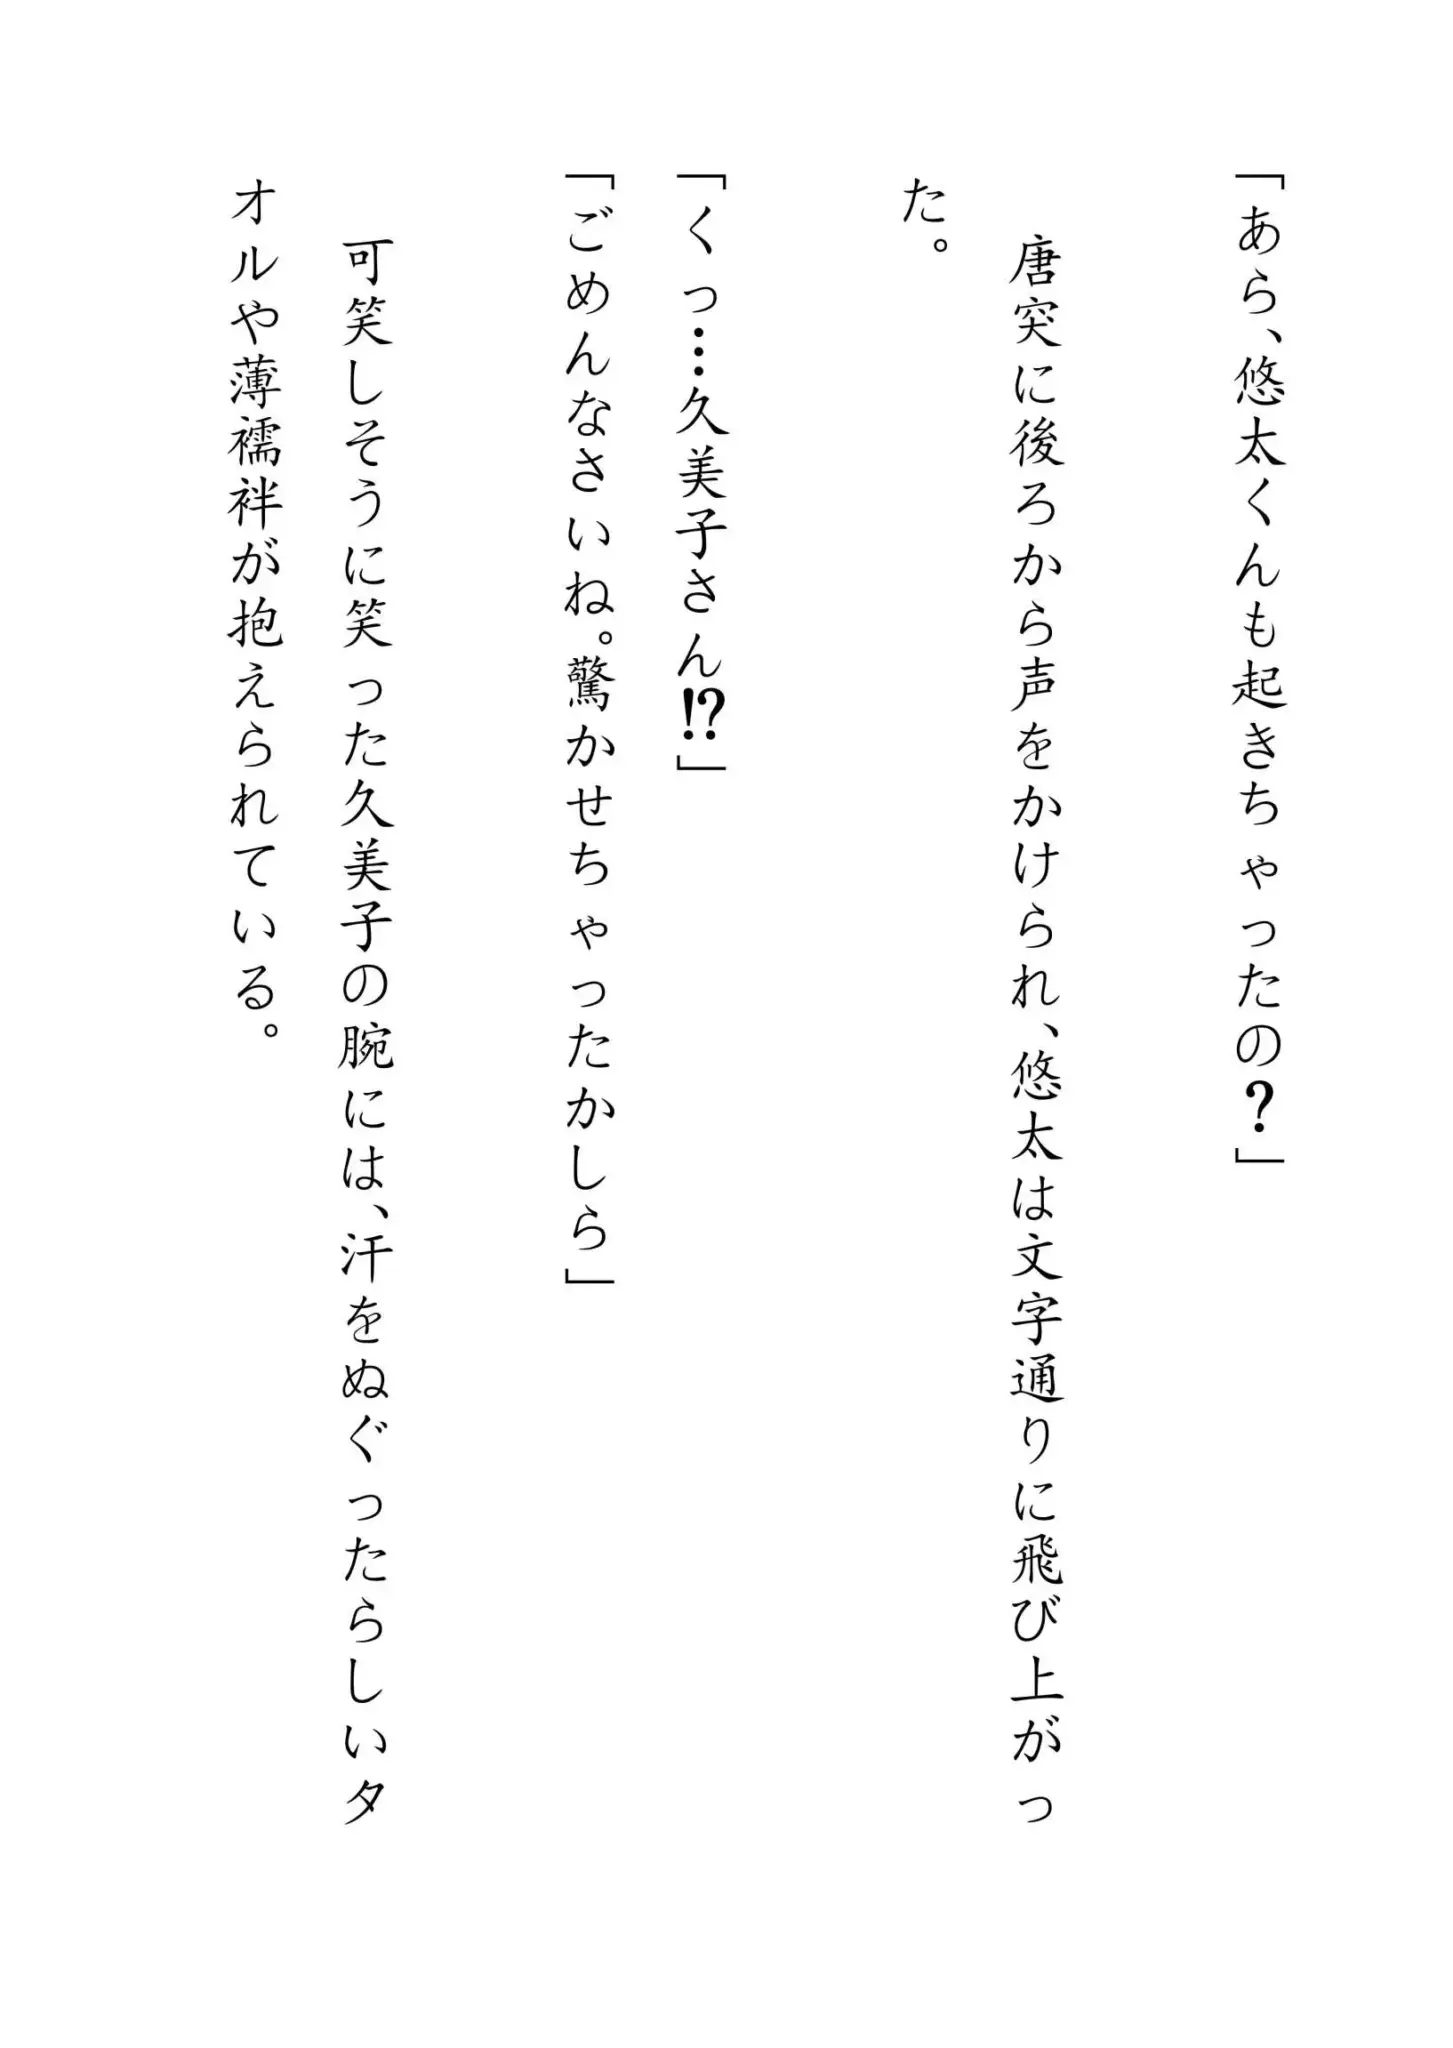 「あら、悠太くんも起きちゃったの？」
唐突に後ろから声をかけられ、悠太は文字通りに飛び上がっ
た。
「くっ…久美子さん⁉」
「ごめんなさいね。驚かせちゃったかしら」
可笑しそうに笑った久美子の腕には、汗をぬぐったらしいタ
オルや薄襦袢が抱えられている。